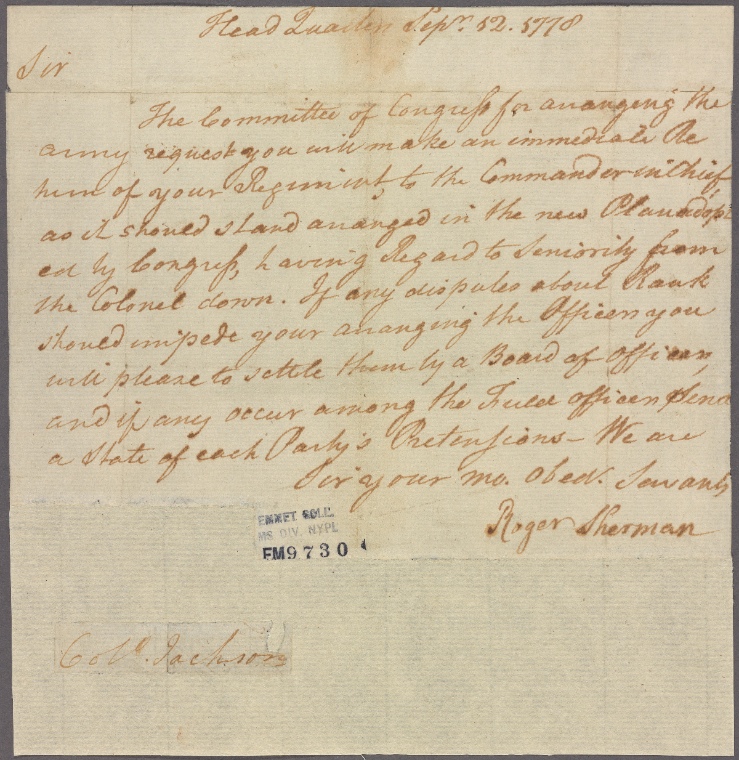 Head Quarters Sepr. 12. 1778
Sir
The Committee of Congress for arrangeing the
army request you will make an immediate Re
turn of your Regiment, to the Commander in Chief,
as it should stand arranged in the new Plan adopt
ed by Congress, having Regard to Seniority from
the Colonel down. If any disputes about Rank
should impede your arranging the Officers you
will please to settle them by a Board of Officers,
and if any occur among the Field Officers Send
a State of each Party's Pretensions - We are
Sir your mo. Obed. Servants
Roger Sherman
EMMET COLL.
MS. DIV. NYPL
EM9730
Colo. Jackson